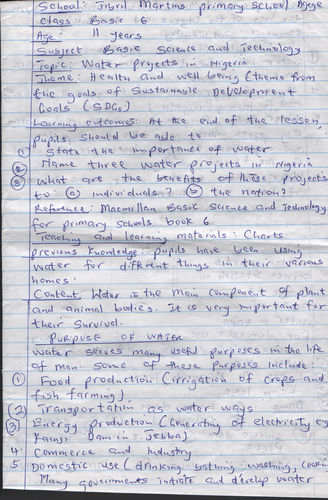 School: Jibril Martins primary school Agege
Class: Basic 6
Age: 11 years
Subject Basic Science and Technology
Topic: Water projects in Nigeria
Theme: Health and well being (theme from
the goals of Sustainable Development
Goals (SDGs)
Learning outcomes: At the end of the lesson,
pupils should be able to
① State the importance of water
② Name three water projects in Nigeria
③ What are the benefits of these projects
to (a) individuals? (b) the nation?
Reference: Macmillan Basic Science and Technology
for primary schools book 6
Teaching and learning materials: Charts
previous knowledge: pupils have been using
water for different things in their various
homes.
Content: Water is the main component of plant
and animal bodies. It is very important for
their survival.
PURPOSE OF WATER
Water serves many useful purposes in the life
of man. Some of these purposes include:
① Food production (irrigation of crops and
fish farming)
② Transportation as water ways
③ Energy production (generating of electricity eg
Kainji Dam in Jebba)
4 Commerce and Industry
5 Domestic use (drinking, bathing washing,
Many governments initiate and develop water